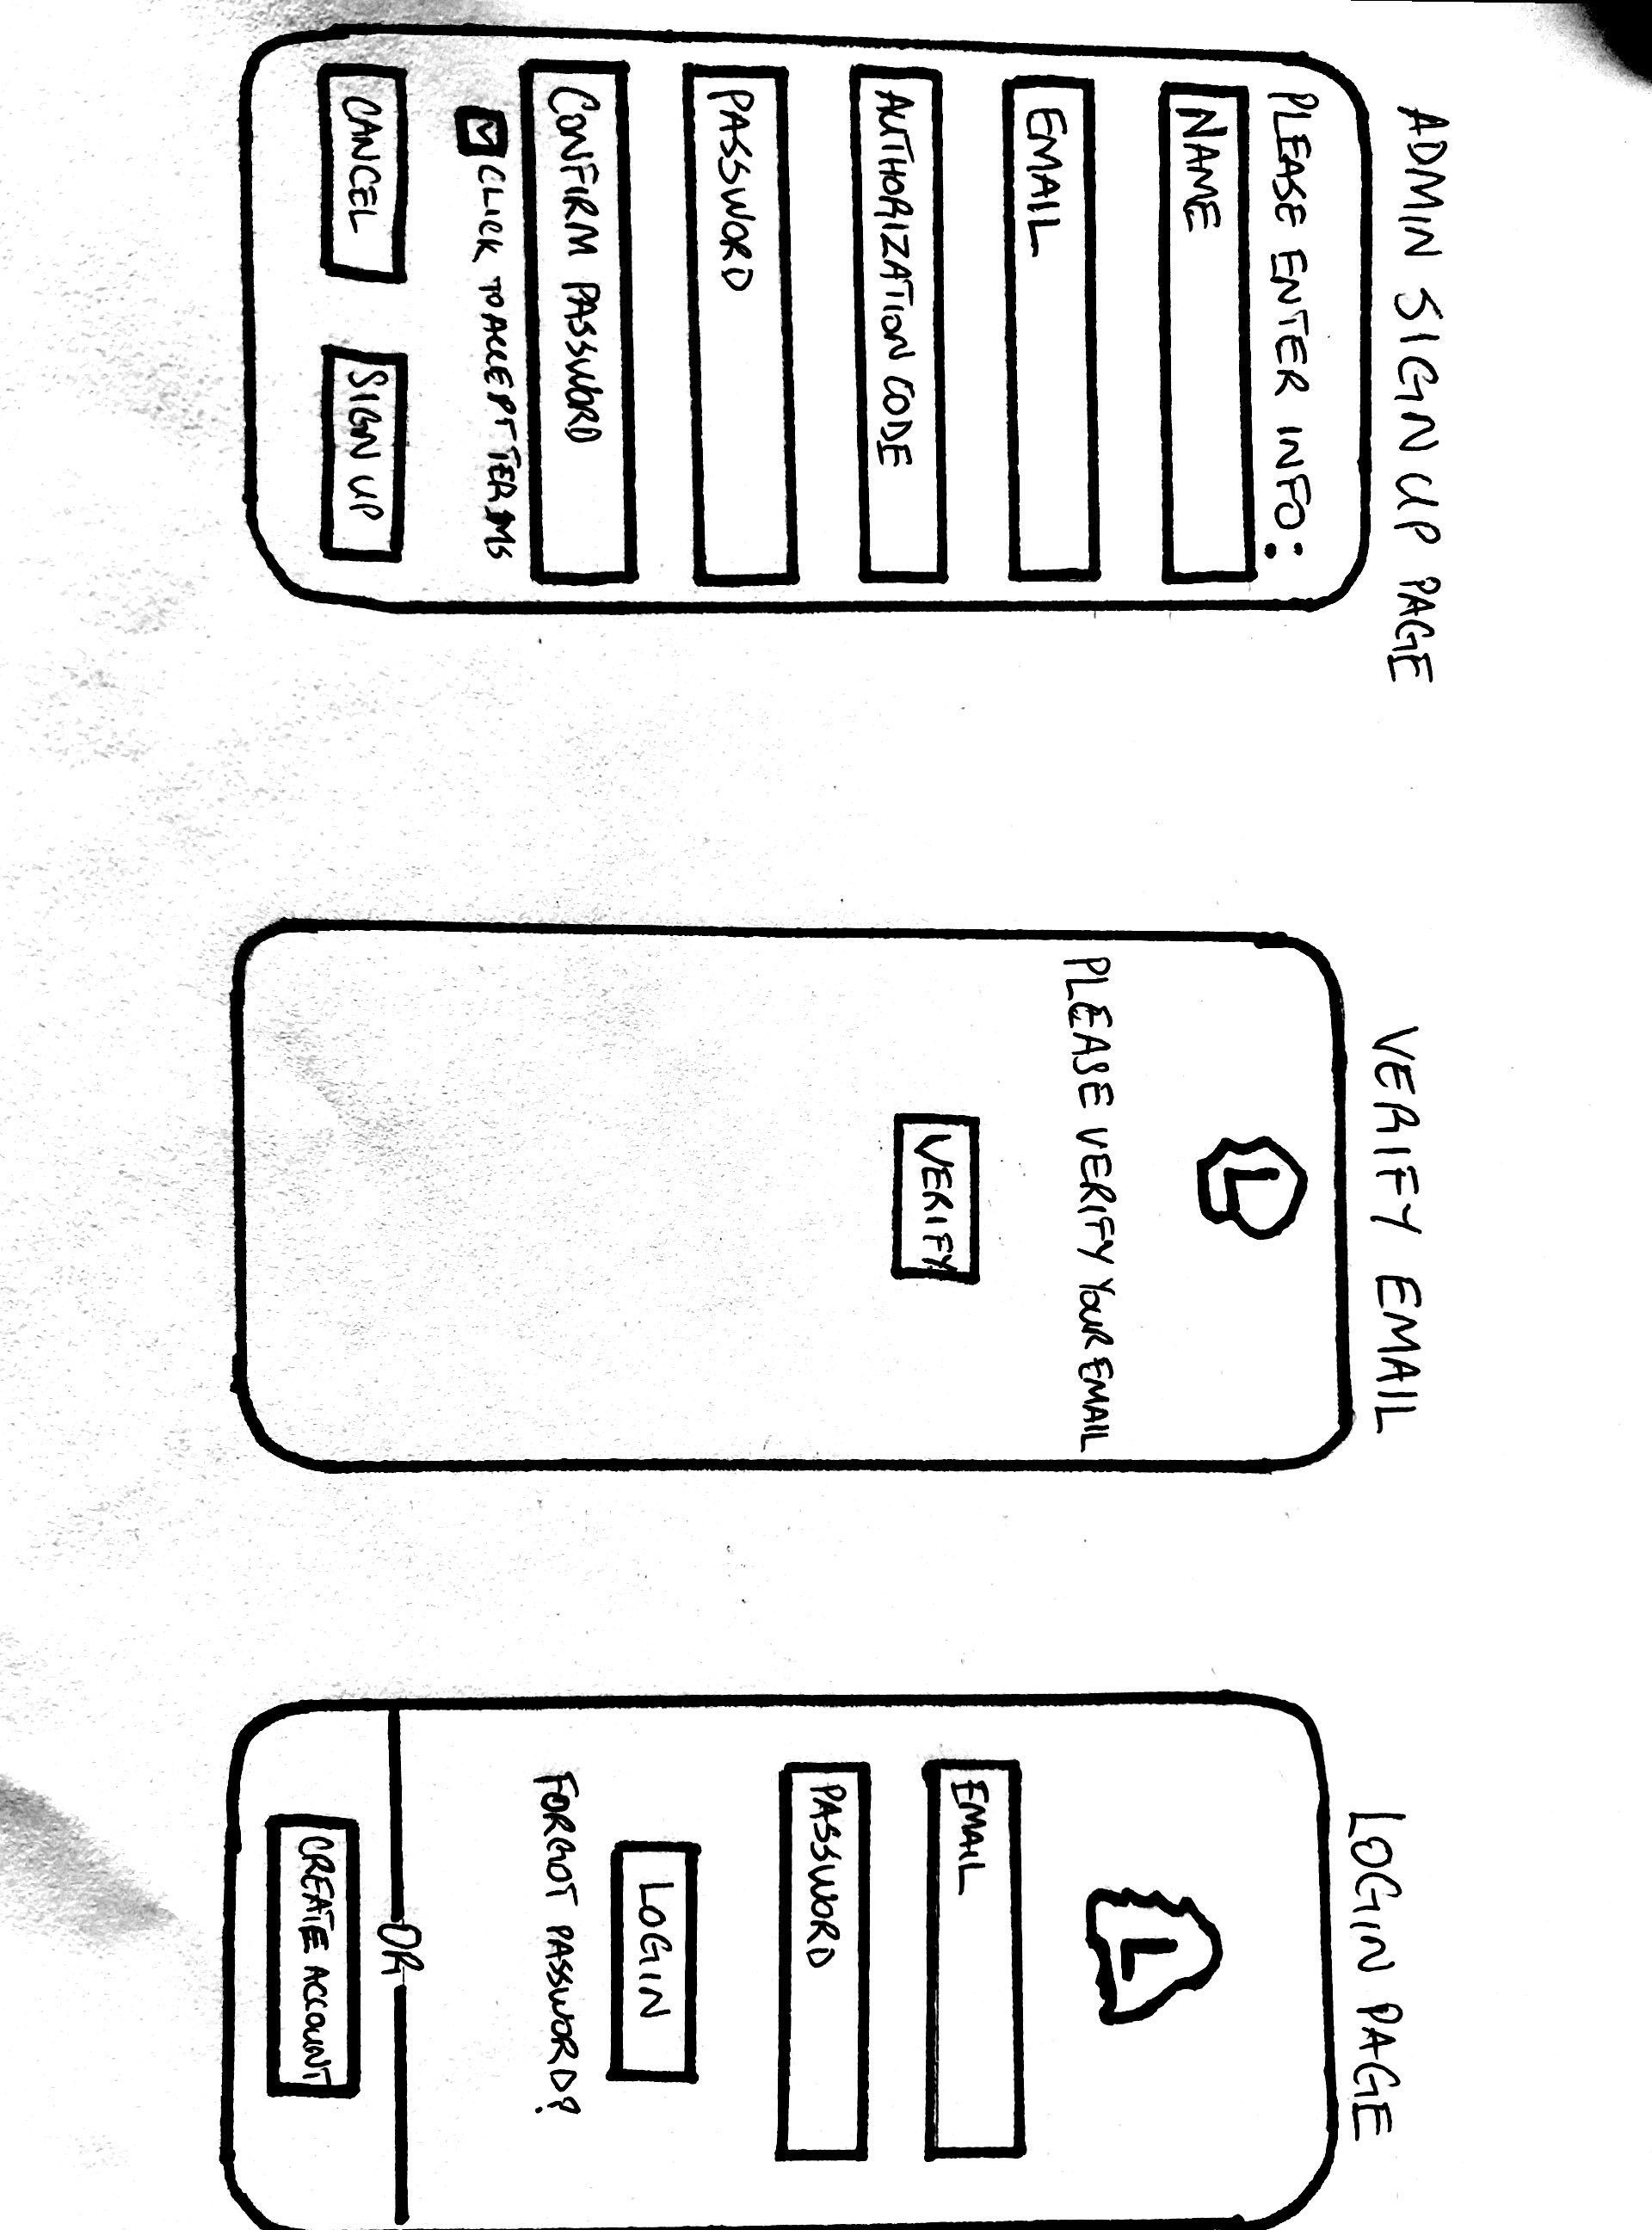 ADMIN SIGN UP PAGE
PLEASE ENTER INFO:
NAME
EMAIL
AUTHORIZATION CODE
PASSWORD
CONFIRM PASSWORD
CLICK TO ACCEPT TERMS
CANCEL
SIGN UP
VERIFY EMAIL
L
PLEASE VERIFY YOUR EMAIL
VERIFY
LOGIN PAGE
L
EMAIL
PASSWORD
LOGIN
FORGOT PASSWORD?
OR
CREATE ACCOUNT